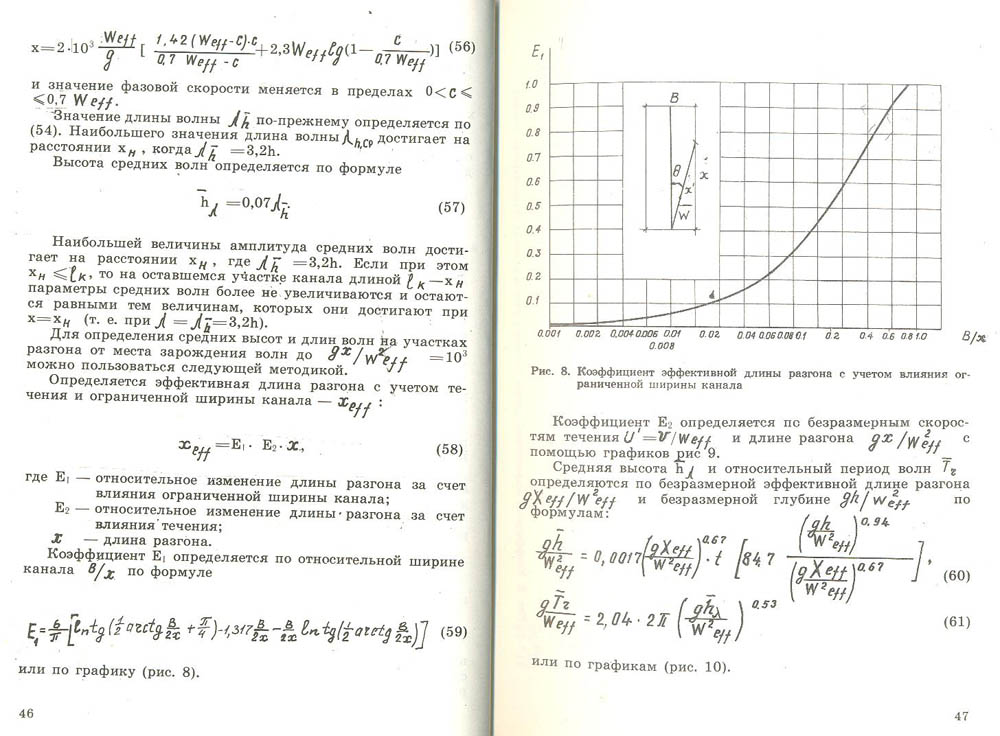 x=2·10³ Weff/g [ 1,42 (Weff-c)·c / 0,7 Weff - c + 2,3 Weff lg(1— c / 0,7 Weff)] (56)
и значение фазовой скорости меняется в пределах 0<c⩽
⩽0,7 Weff.
Значение длины волны λh̄ по-прежнему определяется по
(54). Наибольшего значения длина волны λh,ср достигает на
расстоянии xн, когда λh̄ =3,2h.
Высота средних волн определяется по формуле
h̄λ =0,07λh̄. (57)
Наибольшей величины амплитуда средних волн дости-
гает на расстоянии xн, где λh̄ =3,2h. Если при этом
xн ⩽ℓк, то на оставшемся участке канала длиной ℓк—xн
параметры средних волн более не увеличиваются и остают-
ся равными тем величинам, которых они достигают при
x=xн (т. е. при λ = λh̄=3,2h).
Для определения средних высот и длин волн на участках
разгона от места зарождения волн до gx/W²eff =10³
можно пользоваться следующей методикой.
Определяется эффективная длина разгона с учетом те-
чения и ограниченной ширины канала — xeff :
xeff =E₁· E₂· x, (58)
где E₁ — относительное изменение длины разгона за счет
влияния ограниченной ширины канала;
E₂ — относительное изменение длины разгона за счет
влияния течения;
x — длина разгона.
Коэффициент E₁ определяется по относительной ширине
канала B/x по формуле
E₁= 6/π [ln tg(1/2 arctg B/2x + π/4)-1,317 B/2x - B/2x ln tg(1/2 arctg B/2x)] (59)
или по графику (рис. 8).
46
E₁
1.0
0.9
0.8
0.7
0.6
0.5
0.4
0.3
0.2
0.1
B
θ
x'
x
W
0.001 0.002 0.004 0.006 0.008 0.01 0.02 0.04 0.06 0.08 0.1 0.2 0.4 0.6 0.8 1.0 B/x
Рис. 8. Коэффициент эффективной длины разгона с учетом влияния ог-
раниченной ширины канала
Коэффициент E₂ определяется по безразмерным скорос-
тям течения U'=V/Weff и длине разгона gx/W²eff с
помощью графиков рис 9.
Средняя высота h̄λ и относительный период волн T̄r
определяются по безразмерной эффективной длине разгона
gXeff/W²eff и безразмерной глубине gh/W²eff по
формулам:
gh̄/W²eff = 0,0017(gXeff/W²eff)^0.67 · t [84,7 (gh/W²eff)^0.94 / (gXeff/W²eff)^0.67], (60)
gT̄r/Weff = 2,04 · 2π (gh̄λ/W²eff)^0.53 (61)
или по графикам (рис. 10).
47